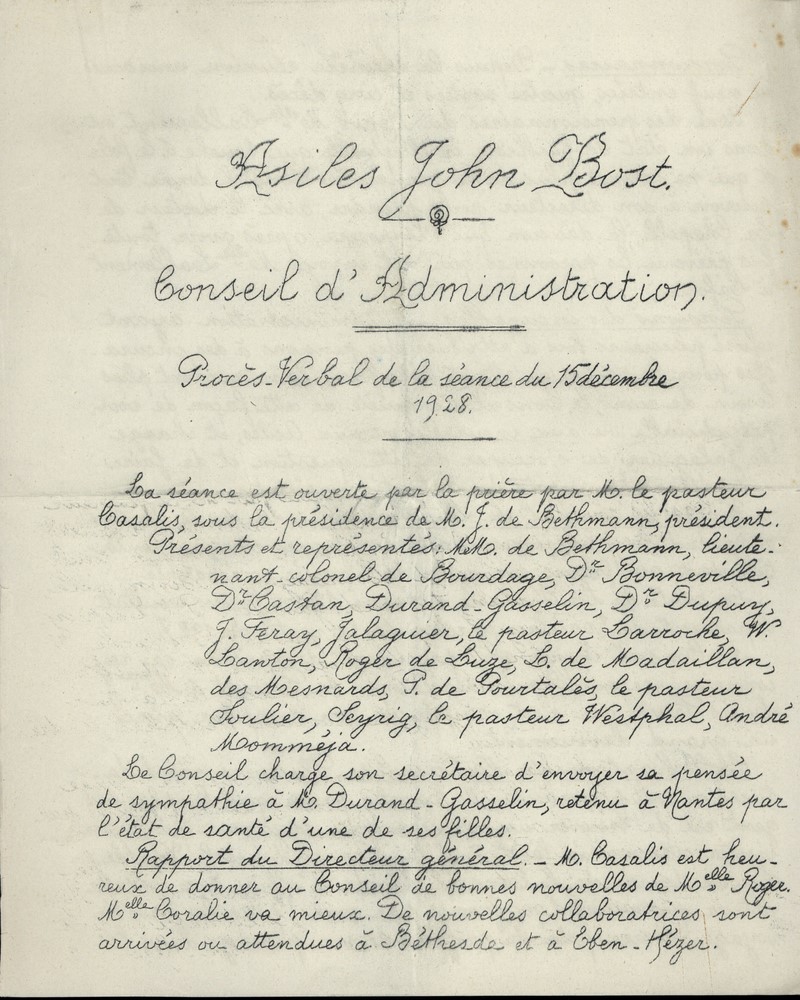 Asiles John Bost.
Conseil d'Administration.
Procès-Verbal de la séance du 15 décembre
1928.
La séance est ouverte par la prière par M. le pasteur
Casalis, sous la présidence de M. J. de Bethmann, président.
Présents et représentés: MM. de Bethmann, lieute-
nant-colonel de Bourdage, Dr Bonneville,
Dr Castan, Durand-Gasselin, Dr Dupuy,
J. Feray, Jalaguier, le pasteur Larroche, W.
Lawton, Roger de Luze, L. de Madaillan,
des Mesnards, P. de Pourtalès, le pasteur
Soulier, Seyrig, le pasteur Westphal, André
Momméja.
Le Conseil charge son secrétaire d'envoyer sa pensée
de sympathie à M. Durand-Gasselin, retenu à Nantes par
l'état de santé d'une de ses filles.
Rapport du Directeur général. - M. Casalis est heu-
reux de donner au Conseil de bonnes nouvelles de Melle Roger.
Melle Coralie va mieux. De nouvelles collaboratrices sont
arrivées ou attendues à Béthesda et à Eben-Hézer.